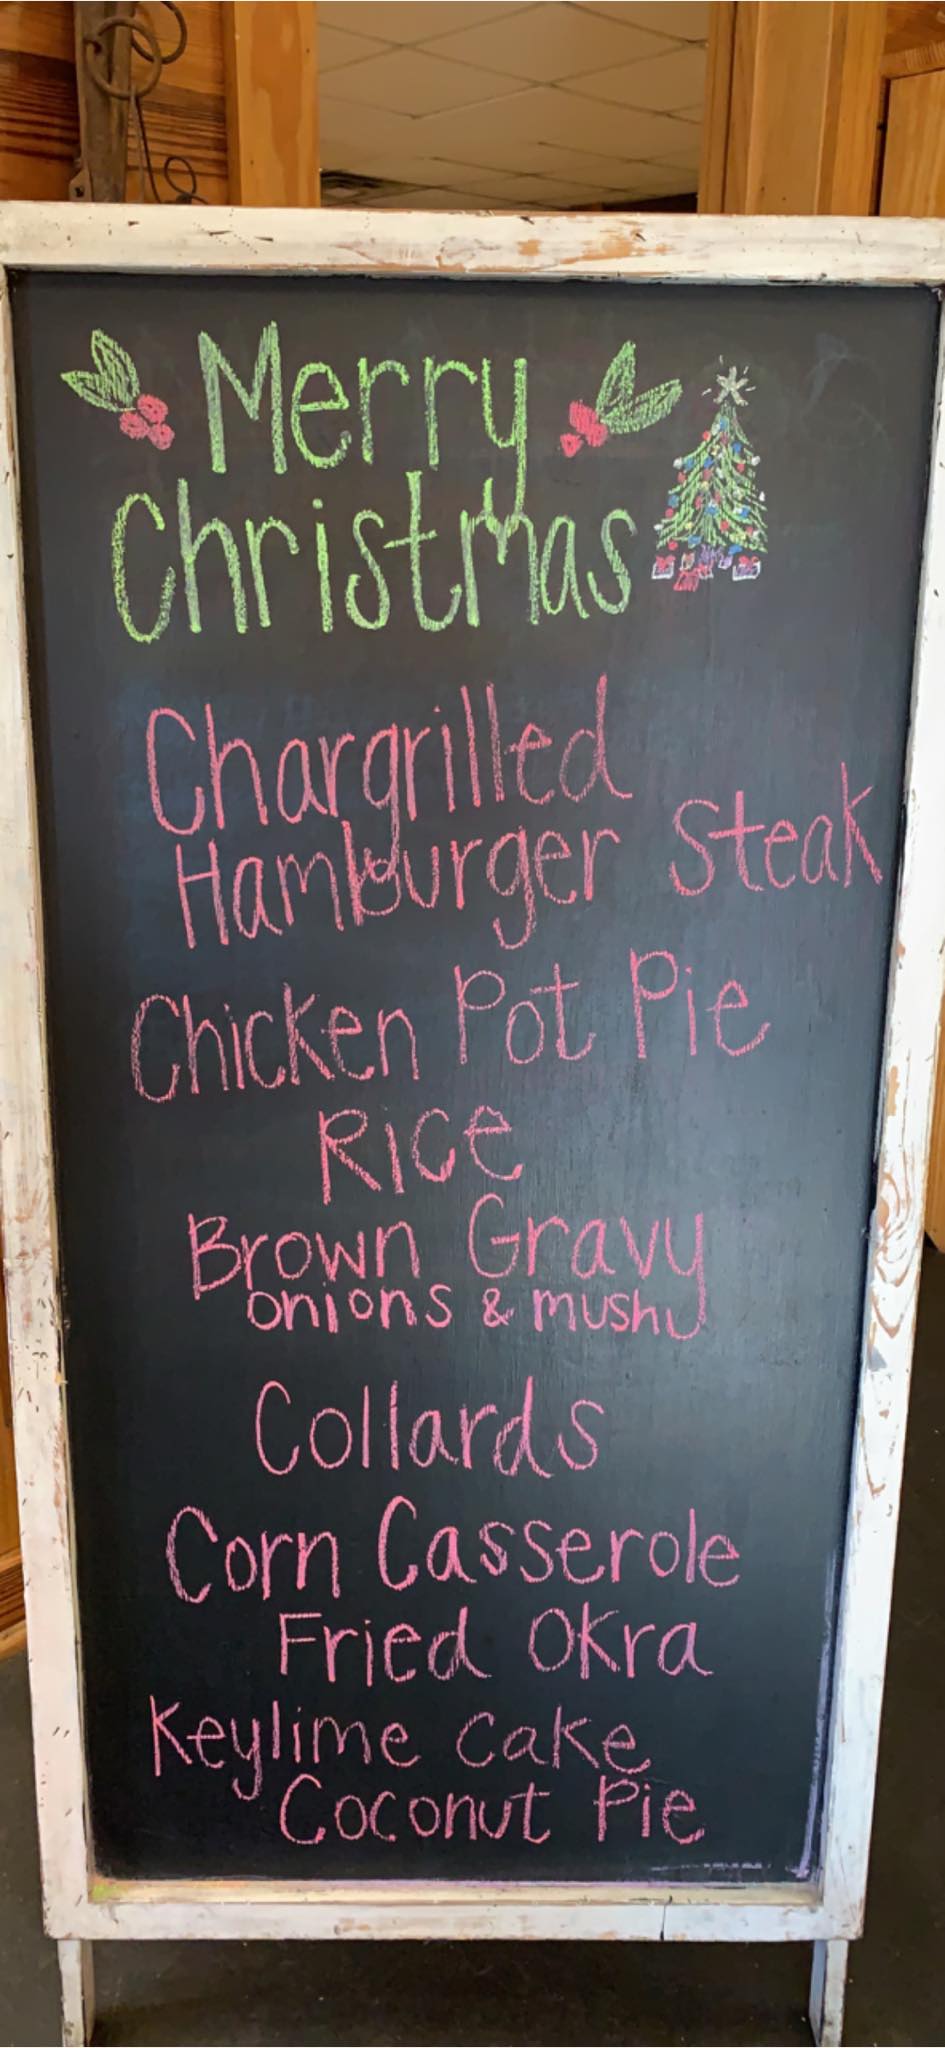 Merry
Christmas
Chargrilled
Hamburger Steak
Chicken Pot Pie
Rice
Brown Gravy
onions & mush
Collards
Corn Casserole
Fried Okra
Keylime Cake
Coconut Pie